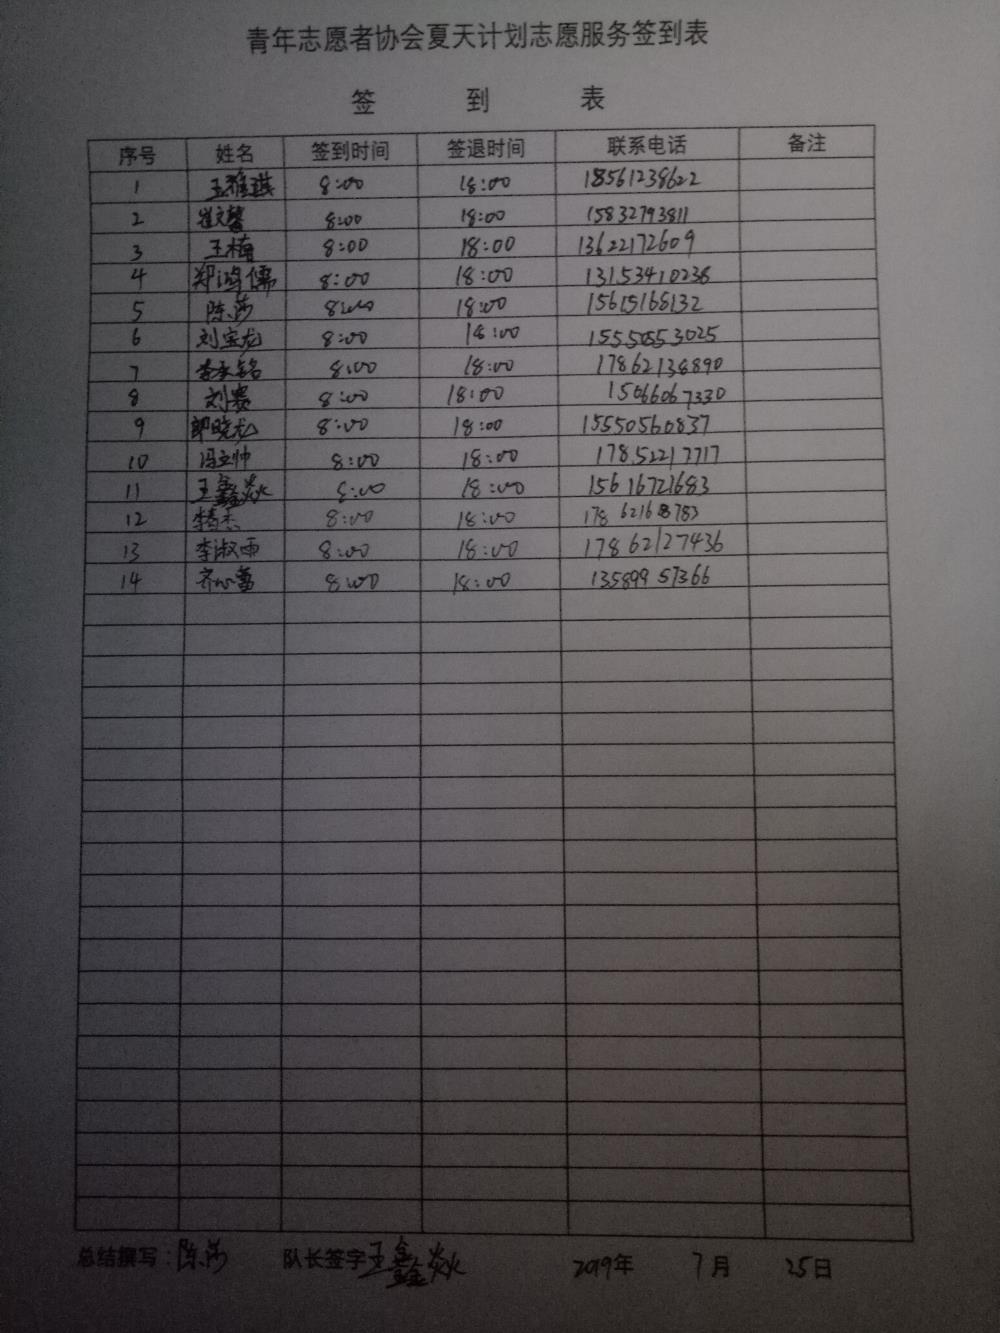 青年志愿者协会夏天计划志愿服务签到表
签 到 表
序号 姓名 签到时间 签退时间 联系电话 备注
1 王雅琪 8:00 18:00 18561238622
2 崔文馨 8:00 18:00 15832793811
3 王楠 8:00 18:00 13622172609
4 郑鸿儒 8:00 18:00 13153410236
5 陈莎 8:00 18:00 15615168132
6 刘宝龙 8:00 18:00 15550553025
7 8:00 18:00 17862138890
8 刘赛 8:00 18:00 15066067330
9 郭晓龙 8:00 18:00 15550560837
10 冯立帅 8:00 18:00 17852217717
11 王鑫焱 8:00 18:00 15616721683
12 8:00 18:00 17862168783
13 李淑雨 8:00 18:00 17862127436
14 齐心蕾 8:00 18:00 13589957366
总结撰写:陈莎 队长签字王鑫焱 2019年 7月 25日